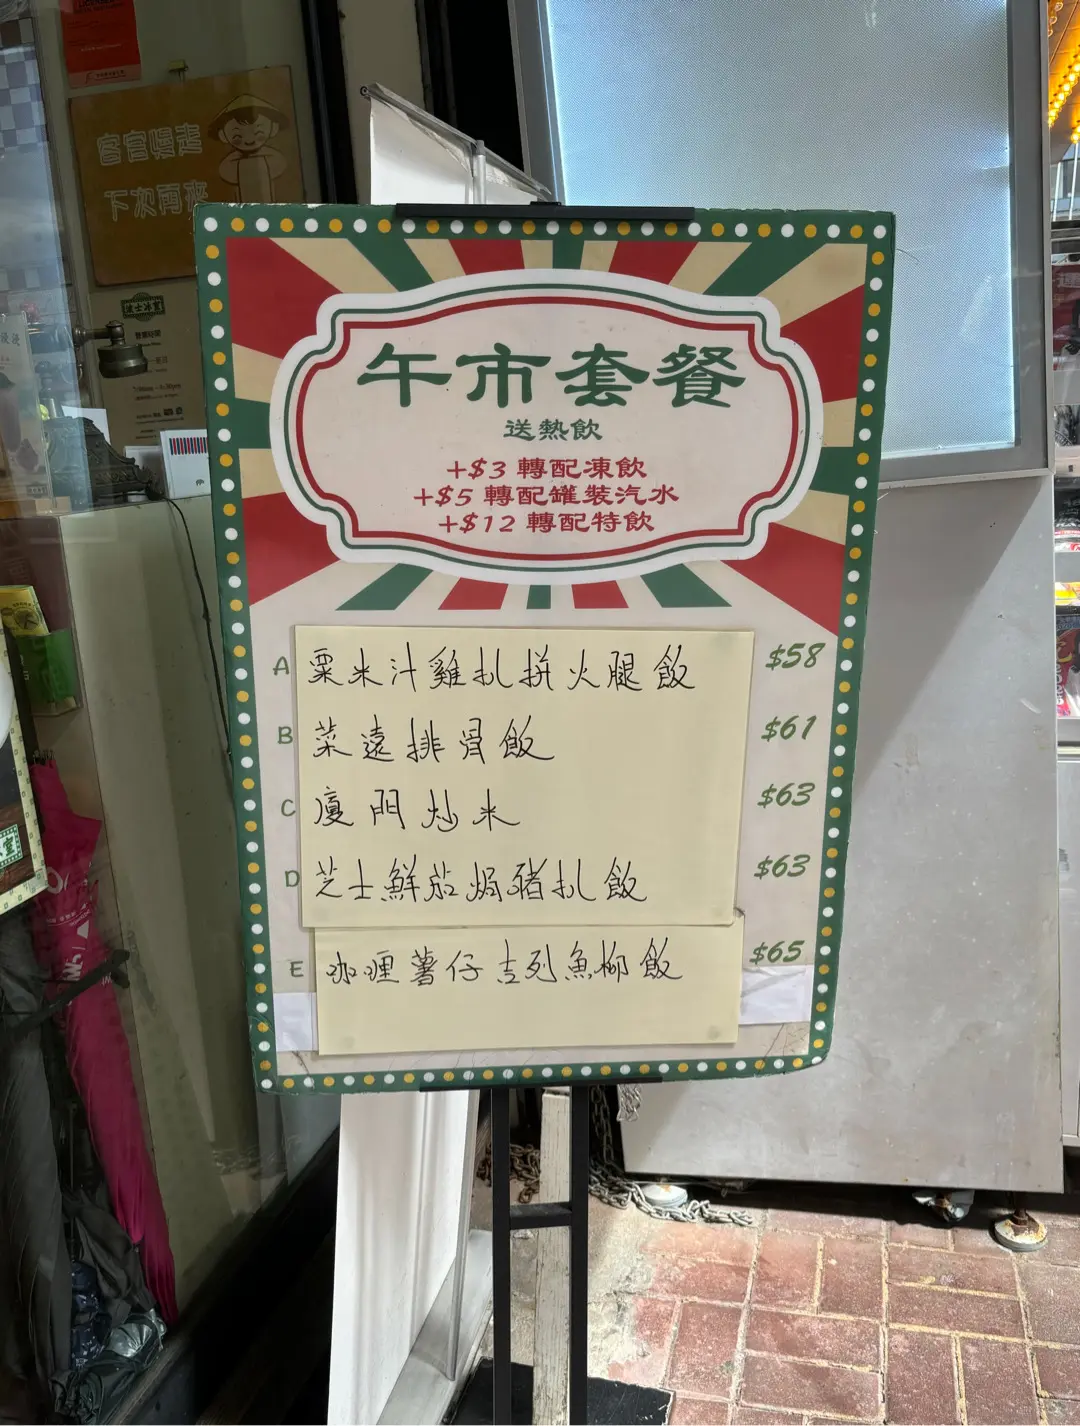 客官慢走
下次再來
波士冰室
營業時間
午市套餐
送熱飲
+$3 轉配凍飲
+$5 轉配罐裝汽水
+$12 轉配特飲
A 粟米汁雞扒拼火腿飯 $58
B 菜遠排骨飯 $61
C 廈門炒米 $63
D 芝士鮮茄焗豬扒飯 $63
E 咖喱薯仔吉列魚柳飯 $65